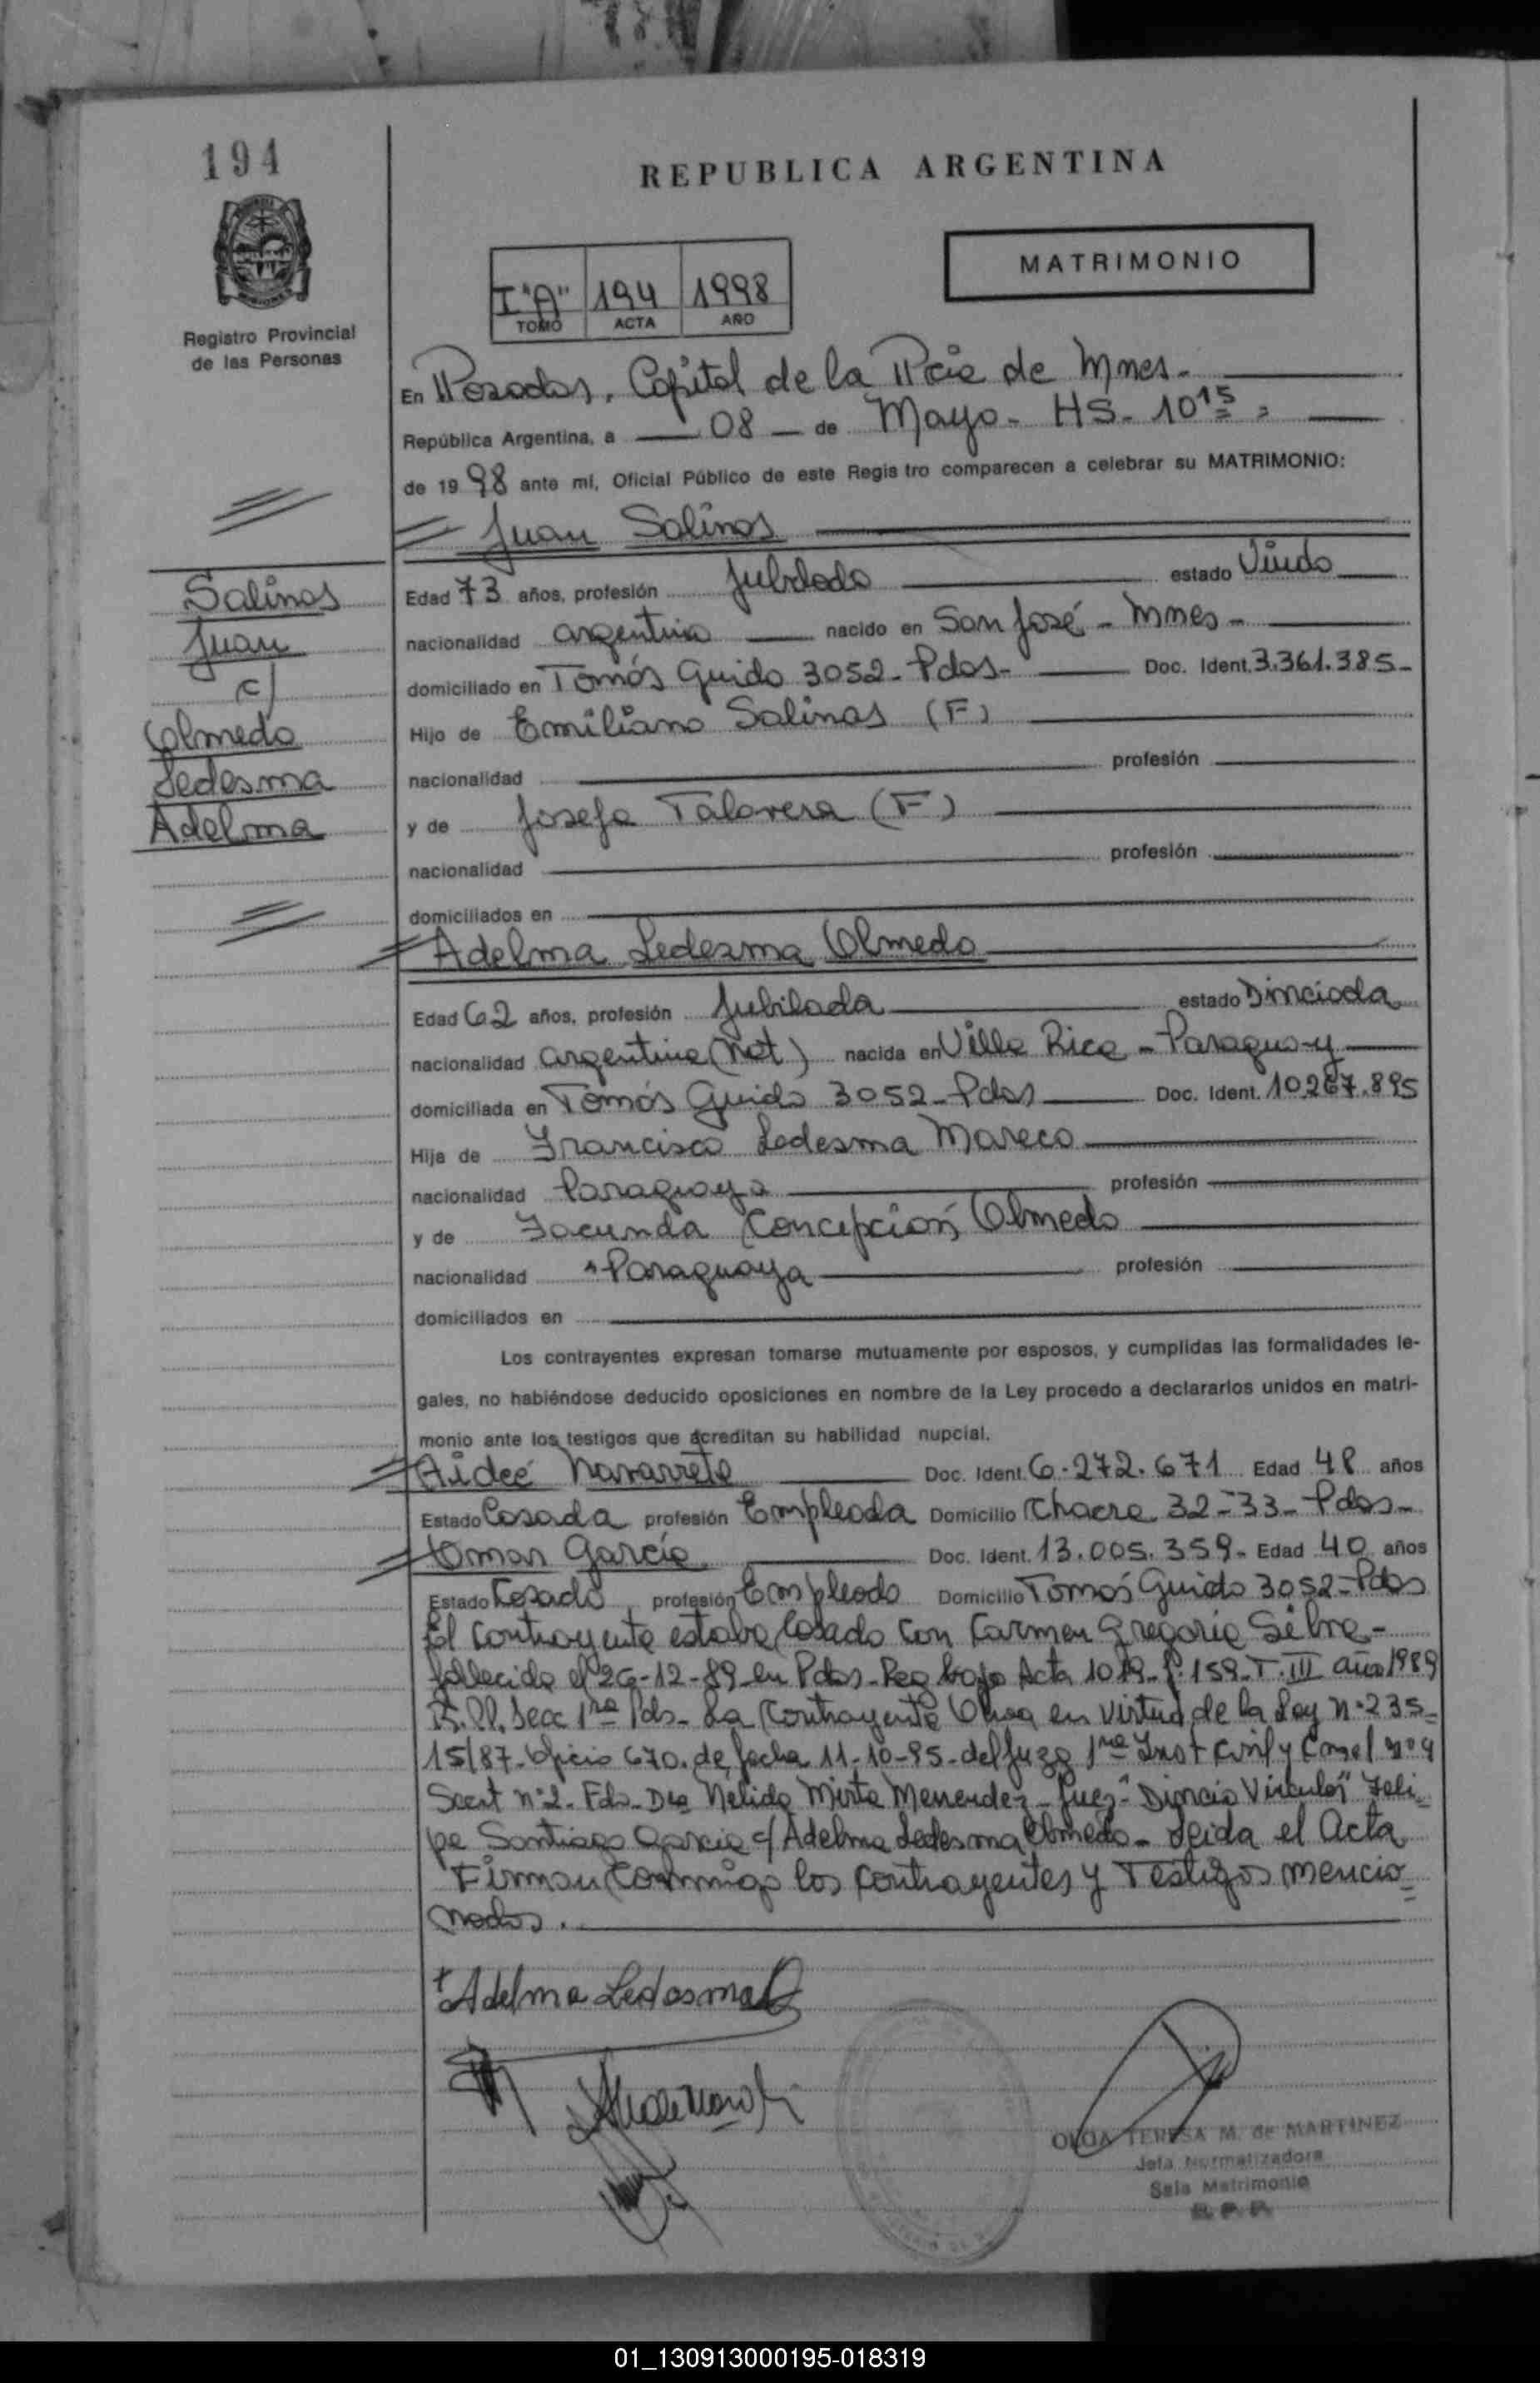 194
REPUBLICA ARGENTINA
MATRIMONIO
I "A" 194 1998
TOMO ACTA AÑO
Registro Provincial
de las Personas
En Posadas, Capital de la Pcia de Mnes.
República Argentina, a 08 de Mayo - HS - 10 15
de 1998 ante mí, Oficial Público de este Regis tro comparecen a celebrar su MATRIMONIO:
Juan Salinas
Salinas
Juan
c/
Olmedo
Ledesma
Adelma
Edad 73 años, profesión Jubilado estado Viudo
nacionalidad argentino nacido en San José - Mnes -
domiciliado en Tomás Guido 3052 - Pdas - Doc. Ident. 3.361.385 -
Hijo de Emiliano Salinas (F)
nacionalidad profesión
y de Josefa Talavera (F)
nacionalidad profesión
domiciliados en
Adelma Ledezma Olmedo
Edad 62 años, profesión Jubilada estado Divorciada
nacionalidad argentina (Nat) nacida en Villa Rica - Paraguay
domiciliada en Tomás Guido 3052 - Pdas Doc. Ident. 10.267.895
Hija de Francisco Ledesma Mareco
nacionalidad Paraguayo profesión
y de Facunda Concepción Olmedo
nacionalidad Paraguaya profesión
domiciliados en
Los contrayentes expresan tomarse mutuamente por esposos, y cumplidas las formalidades le-
gales, no habiéndose deducido oposiciones en nombre de la Ley procedo a declararlos unidos en matri-
monio ante los testigos que acreditan su habilidad nupcial.
Aideé Navarrete Doc. Ident. 6.272.671 Edad 48 años
Estado Casada profesión Empleada Domicilio Chacra 32-33 - Pdas -
Omar García Doc. Ident. 13.005.359 - Edad 40 años
Estado Casado profesión Empleado Domicilio Tomás Guido 3052 - Pdas
El contrayente estaba casado con Carmen Gregoria
fallecida el 26-12-89 en Pdas - Reg bajo Acta 1019 - F. 159 - T. III año 1989
Secc 1ra Pdas - La Contrayente en virtud de la Ley Nº 235
15/87 - Oficio 670. de fecha 11-10-95 - del Juzg 1ra Inst Civil y
Secrt nº 2 - Fdo - Dra Nelida Mirta Menendez - Juez - "Divorcio Vincular" Feli-
pe Santiago Garcia c/ Adelma Ledesma Olmedo - Leida el Acta
Firman conmigo los contrayentes y Testigos mencio-
nados.
Adelma Ledesma
OLGA TERESA M. de MARTINEZ
Jefa Normalizadora
Sala Matrimonio
R. P. P.
01_130913000195-018319